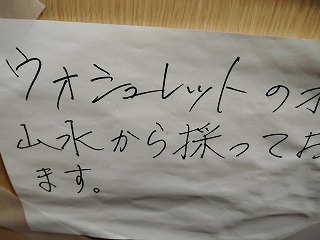 ウォシュレットの水
山水から採ってお
ます。